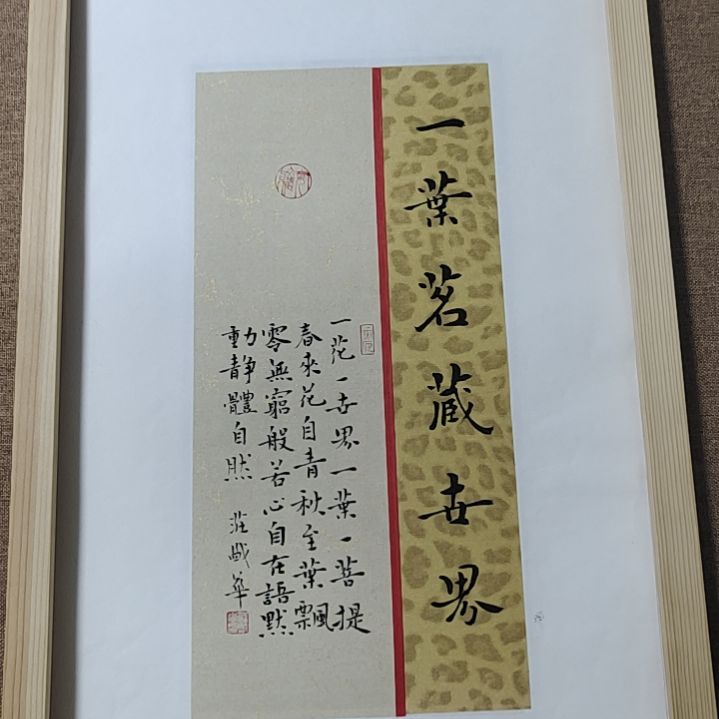 一葉茗蔵世界
一花一世界一葉一菩提
春來花自青秋至葉飄
零無窮般若心自在語默
動静體自然
莊
華